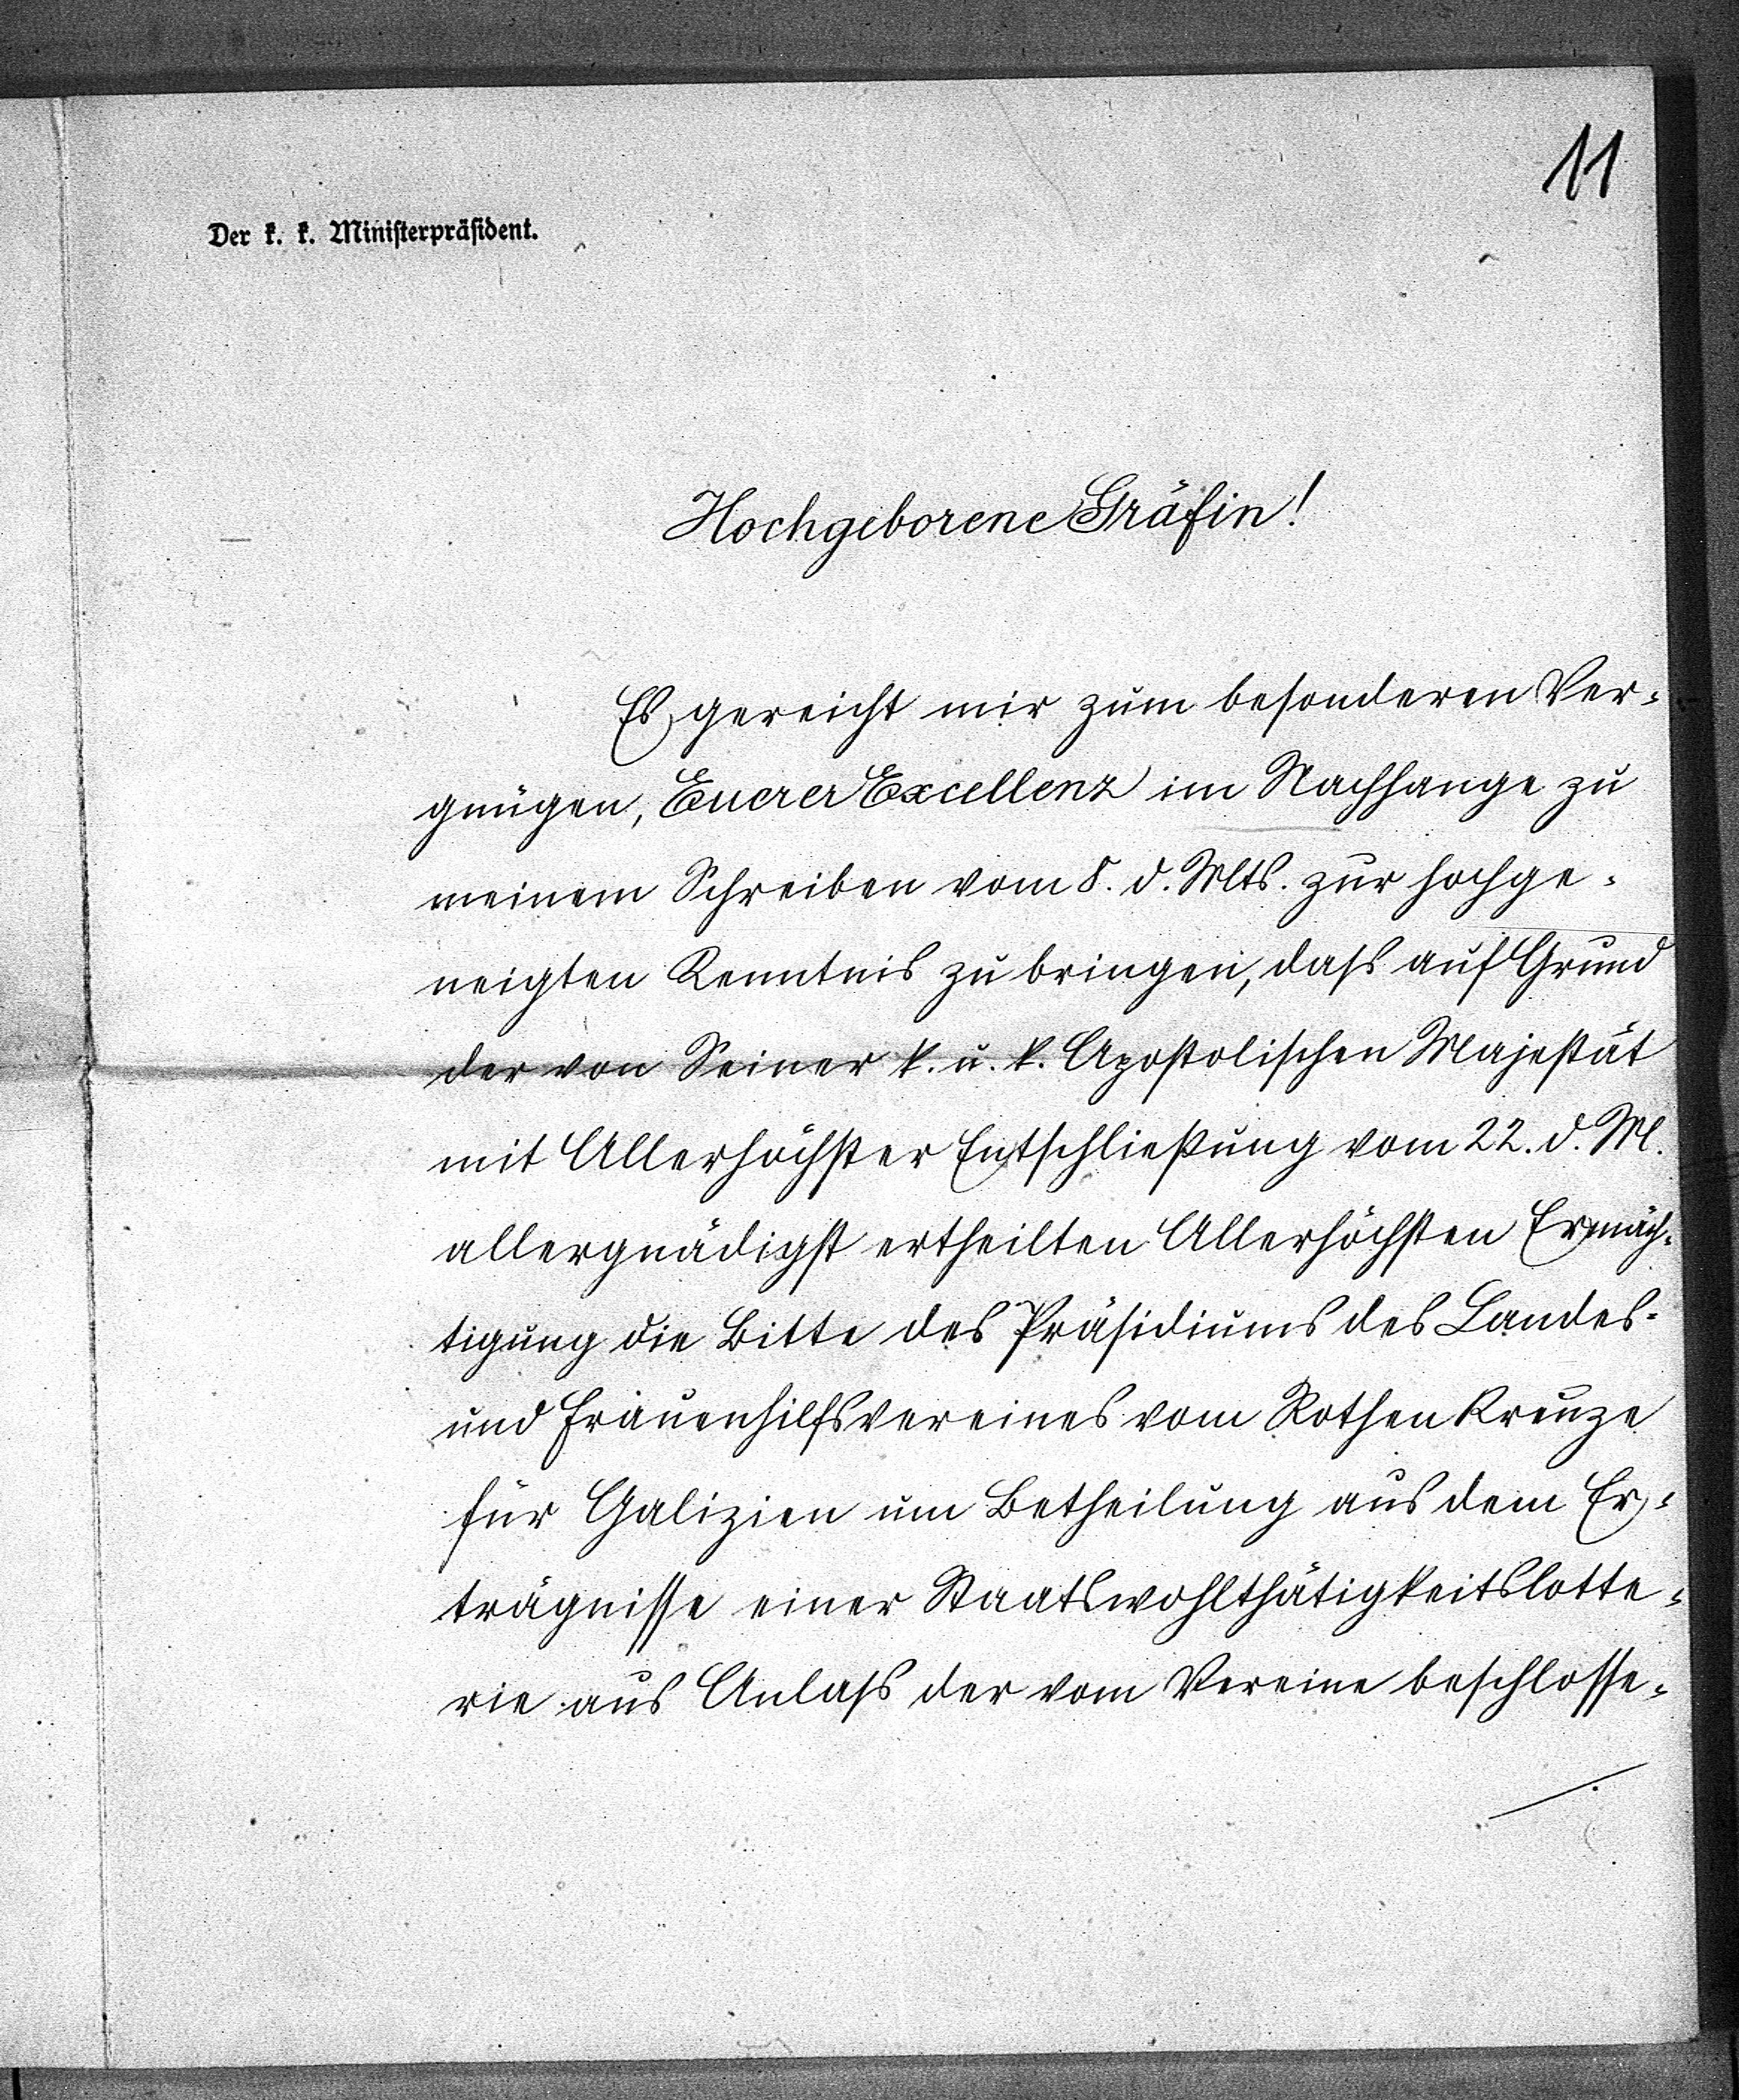 11
Der k. k. Ministerpräsident.
Hochgeborene Gräfin!
Es gereicht mir zum besonderen Ver-
gnügen, Euerer Excellenz im Nachhange zu
meinem Schreiben vom 8. d. Mts. zur hochge-
neigten Kenntnis zu bringen, dass auf Grund
der von Seiner k. u. k. Apostolischen Majestät
mit Allerhöchster Entschließung vom 22. d. M.
allergnädigst ertheilten Allerhöchsten Ermäch-
tigung die Bitte des Präsidiums des Landes-
und Frauenhilfsvereines vom Rothen Kreuze
für Galizien um Betheilung aus dem Er-
trägnisse einer Staatswohlthätigkeitslotte-
rie aus Anlass der vom Vereine beschlosse-